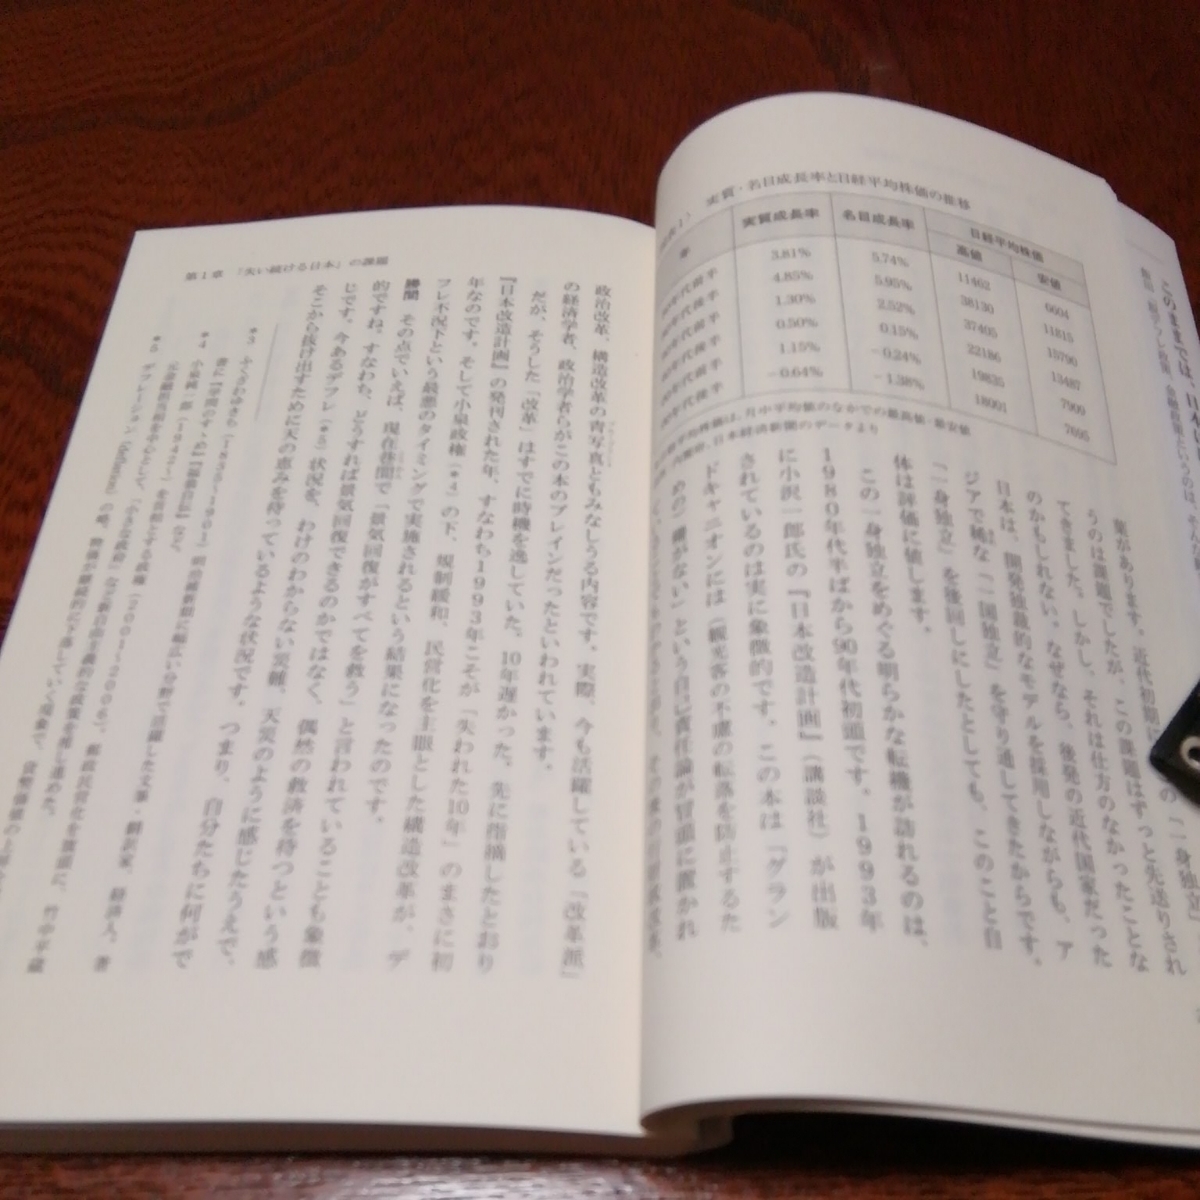 実質・名目成長率と日経平均株価の推移
年 実質成長率 名目成長率 日経平均株価
高値 安値
年代前半 3.81% 5.74% 11462 6604
年代後半 4.85% 5.95% 38130 11815
年代前半 1.30% 2.52% 37405 15790
年代後半 0.50% 0.15% 22186 13487
年代前半 1.15% −0.24% 19835 7909
年代後半 −0.64% −1.38% 18001 7695
平均株価は、月中平均値のなかでの最高値・最安値
内閣府、日本経済新聞のデータより
このままでは、日本は
葉があります。近代初期に
の「一身独立」
うのは課題でしたが、この課題はずっと先送りされ
てきました。しかし、それは仕方のなかったことな
のかもしれない。なぜなら、後発の近代国家だった
日本は、開発独裁的なモデルを採用しながらも、ア
ジアで稀な「一国独立」を守り通してきたからです。
「一身独立」を後回しにしたとしても、このこと自
体は評価に値します。
この一身独立をめぐる明らかな転機が訪れるのは、
1980年代半ばから90年代初頭です。1993年
に小沢一郎氏の『日本改造計画』(講談社)が出版
されているのは実に象徴的です。この本は「グラン
ドキャニオンには(観光客の不慮の転落を防止するた
めの)柵がない」という自己責任論が冒頭に置かれ
第1章 「失い続ける日本」の課題
政治改革、構造改革の青写真ともみなしうる内容です。実際、今も活躍している「改革派」
の経済学者、政治学者らがこの本のブレインだったといわれています。
だが、そうした「改革」はすでに時機を逸していた。10年遅かった。先に指摘したとおり
『日本改造計画』の発刊された年、すなわち1993年こそが「失われた10年」のまさに初
年なのです。そして小泉政権(*4)の下、規制緩和、民営化を主眼とした構造改革が、デ
フレ不況下という最悪のタイミングで実施されるという結果になったのです。
勝間 その点でいえば、現在巷間で「景気回復がすべてを救う」と言われていることも象徴
的ですね。すなわち、どうすれば景気回復できるのかではなく、偶然の救済を待つという感
じです。今あるデフレ(*5)状況を、わけのわからない災難、天災のように感じたうえで、
そこから抜け出すために天の恵みを待っているような状況です。つまり、自分たちに何がで
*3 ふくざわゆきち(1835-1901)明治維新期に幅広い分野で活躍した文筆・翻訳家、経済人。著
書に『学問のすゝめ』『福翁自伝』など。
*4 小泉純一郎(1942-)を首相とする政権(2001-2006)。郵政民営化を旗頭に、竹中平蔵
元金融担当相を中心として、「小さな政府」など新自由主義的な政策を推し進めた。
*5 デフレーション(deflation)の略。物価が継続的に下落していく現象で、貨幣価値の上昇